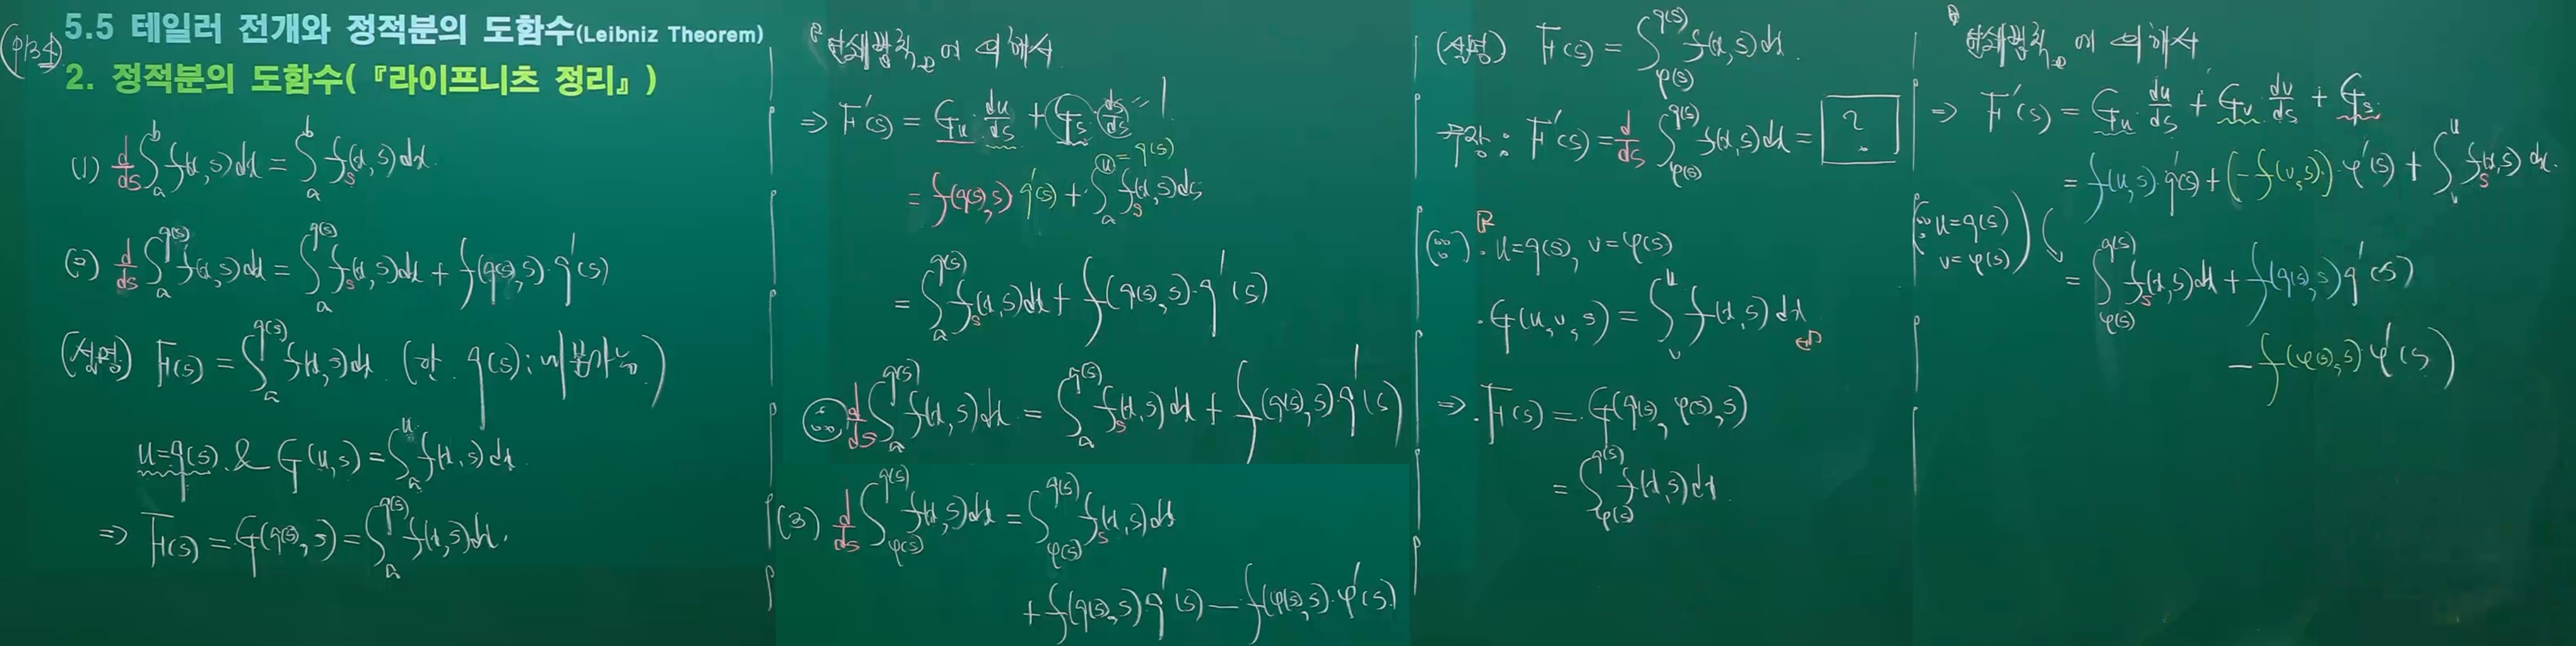 (p134)
5.5 테일러 전개와 정적분의 도함수(Leibniz Theorem)
2. 정적분의 도함수(『라이프니츠 정리』)
(1) d/ds ∫_a^b f(x,s)dx = ∫_a^b f_s(x,s)dx.
(2) d/ds ∫_a^{q(s)} f(x,s)dx = ∫_a^{q(s)} f_s(x,s)dx + f(q(s),s)·q'(s)
(설명) F(s) = ∫_a^{q(s)} f(x,s)dx. (단. q(s): 미분가능)
u=q(s). & G(u,s) = ∫_a^u f(x,s)dx.
⇒ F(s) = G(q(s),s) = ∫_a^{q(s)} f(x,s)dx.
연쇄법칙에 의해서
⇒ F'(s) = G_u · du/ds + G_s · ds/ds = 1
u = q(s)
= f(q(s),s) q'(s) + ∫_a^u f_s(x,s)ds
= ∫_a^{q(s)} f_s(x,s)dx + f(q(s),s)·q'(s)
∴ d/ds ∫_a^{q(s)} f(x,s)dx = ∫_a^{q(s)} f_s(x,s)dx + f(q(s),s)·q'(s)
(3) d/ds ∫_{φ(s)}^{q(s)} f(x,s)dx = ∫_{φ(s)}^{q(s)} f_s(x,s)dx
+ f(q(s),s) q'(s) − f(φ(s),s)·φ'(s)
(설명) F(s) = ∫_{φ(s)}^{q(s)} f(x,s)dx.
구함: F'(s) = d/ds ∫_{φ(s)}^{q(s)} f(x,s)dx = ?
(∵) · u=q(s), v=φ(s)
· G(u,v,s) = ∫_v^u f(x,s)dx
⇒ · F(s) = G(q(s), φ(s), s)
= ∫_{φ(s)}^{q(s)} f(x,s)dx.
연쇄법칙에 의해서
⇒ F'(s) = G_u · du/ds + G_v · dv/ds + G_s.
= f(u,s)·q'(s) + (−f(v,s))·φ'(s) + ∫_v^u f_s(x,s)dx.
(∵ u=q(s)
v=φ(s))
= ∫_{φ(s)}^{q(s)} f_s(x,s)dx + f(q(s),s) q'(s)
− f(φ(s),s) φ'(s)